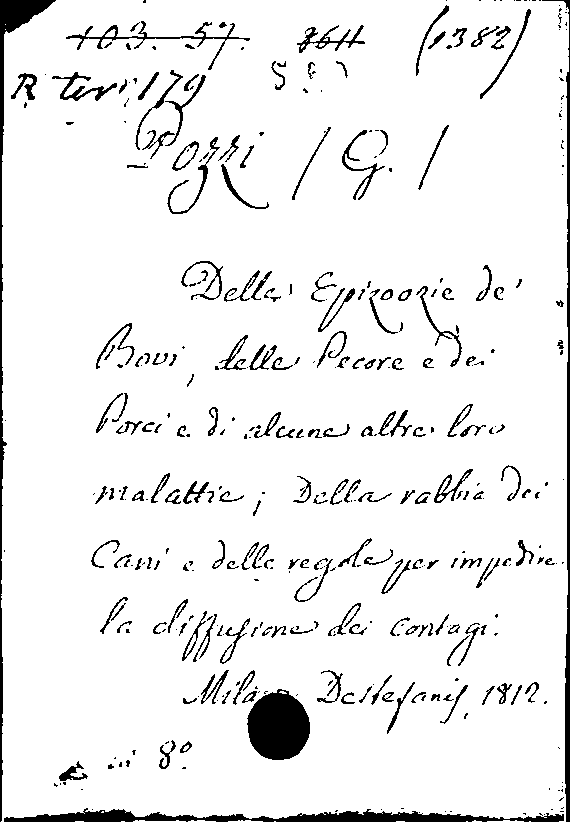 103. 57. 8611 (1382)
R ter 179
Pozzi / G. /
Delle Epizoozie de'
Bovi, delle Pecore e dei
Porci e di alcune altre loro
malattie ; Della rabbia dei
Cani e delle regole per impedire
la diffusione dei contagi.
Milano Destefanis, 1812.
in 8º